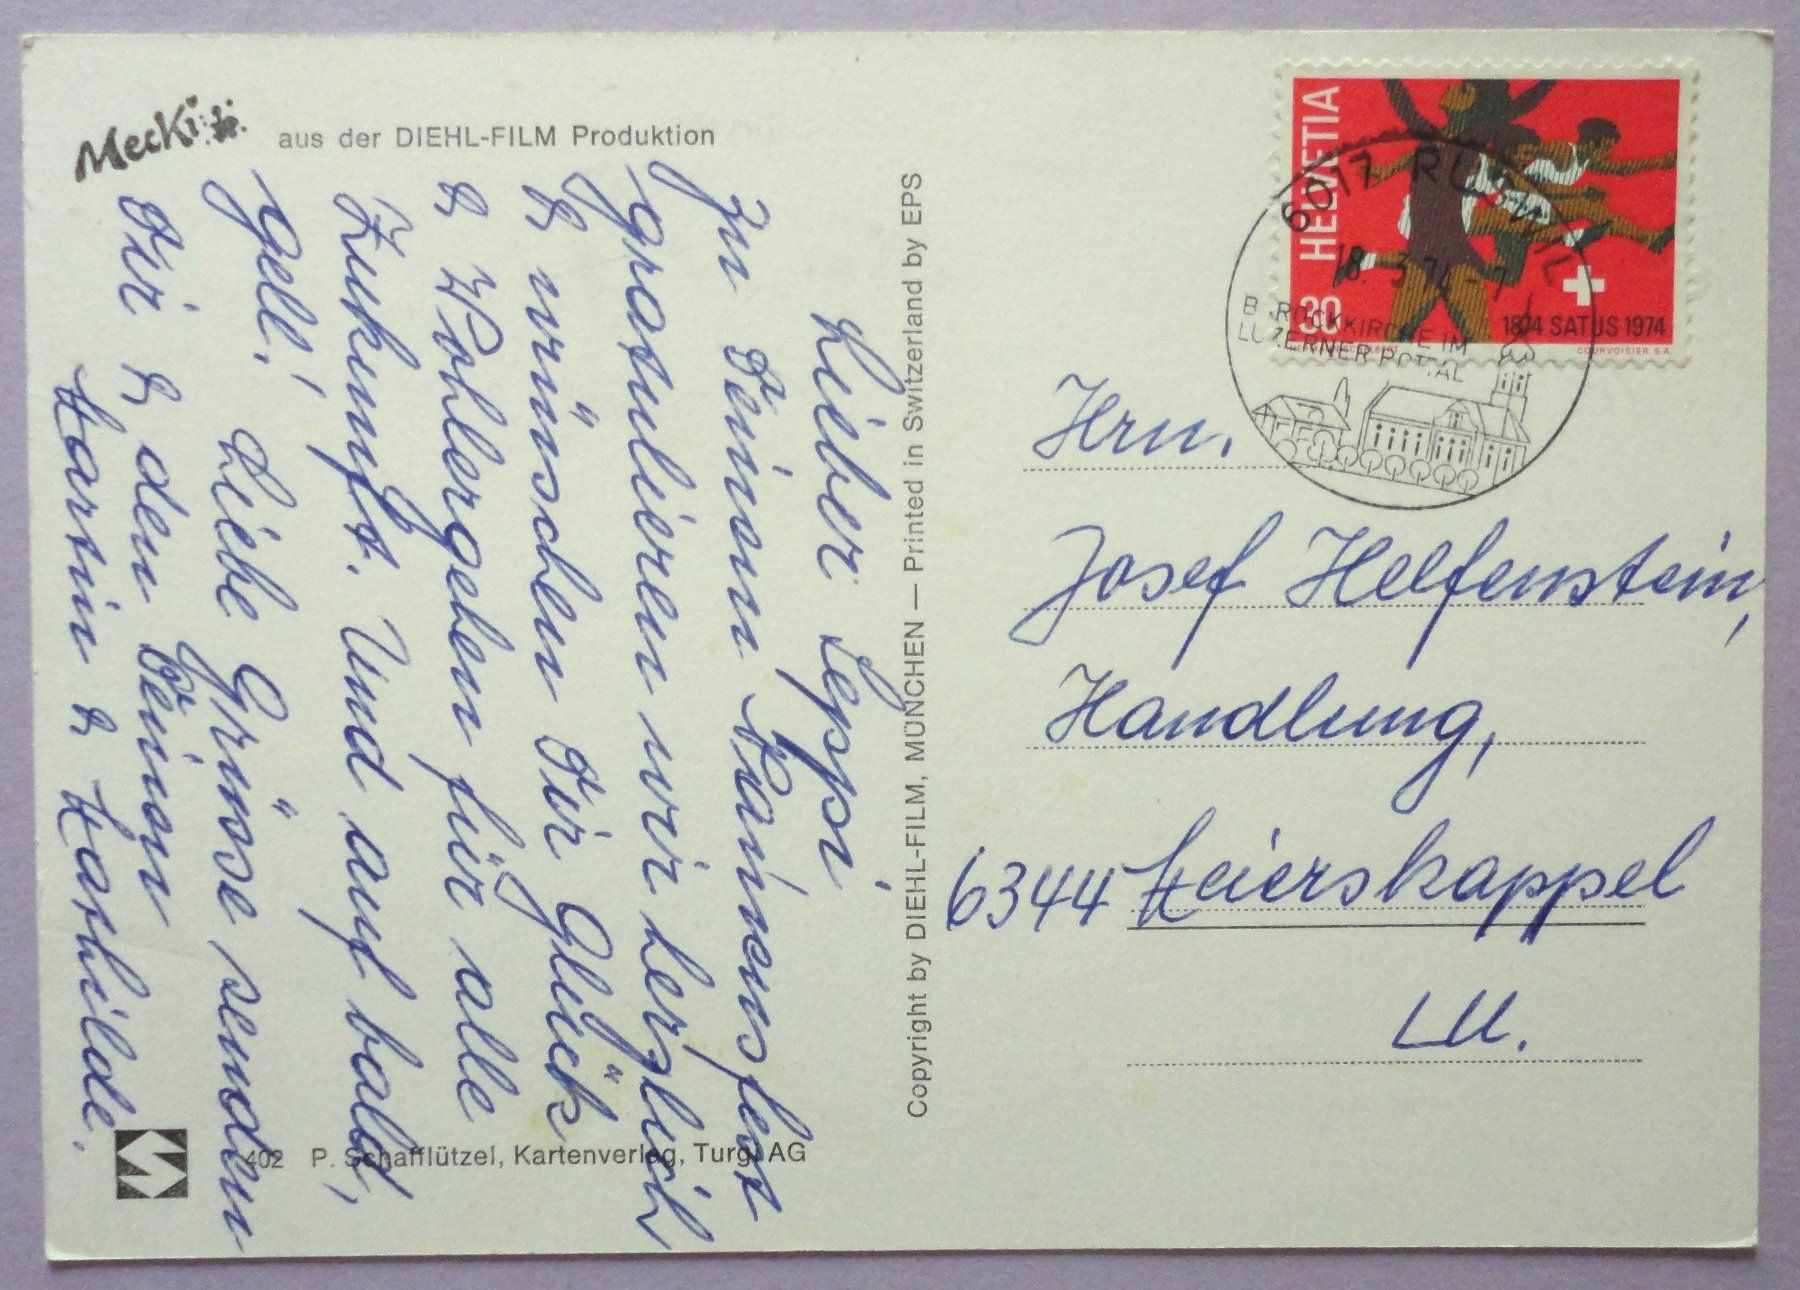 Mecki
aus der DIEHL-FILM Produktion
Lieber Seppi
Zu Deinem Namensfest
gratulieren wir herzlich
& wünschen Dir Glück
& Wohlergehen für alle
Zukunft. Und auf bald,
gell! Liebe Grüsse senden
Dir & den Deinen
Martin & Mathilde.
402 P. Schafflützel, Kartenverlag, Turgi AG
Copyright by DIEHL-FILM, MÜNCHEN — Printed in Switzerland by EPS
HELVETIA
30
1874 SATUS 1974
COURVOISIER S.A.
6017 RUSWIL
18.3.74-7
BAROCKKIRCHE IM
LUZERNER ROTTAL
Hrn.
Josef Helfenstein,
Handlung,
6344 Meierskappel
LU.